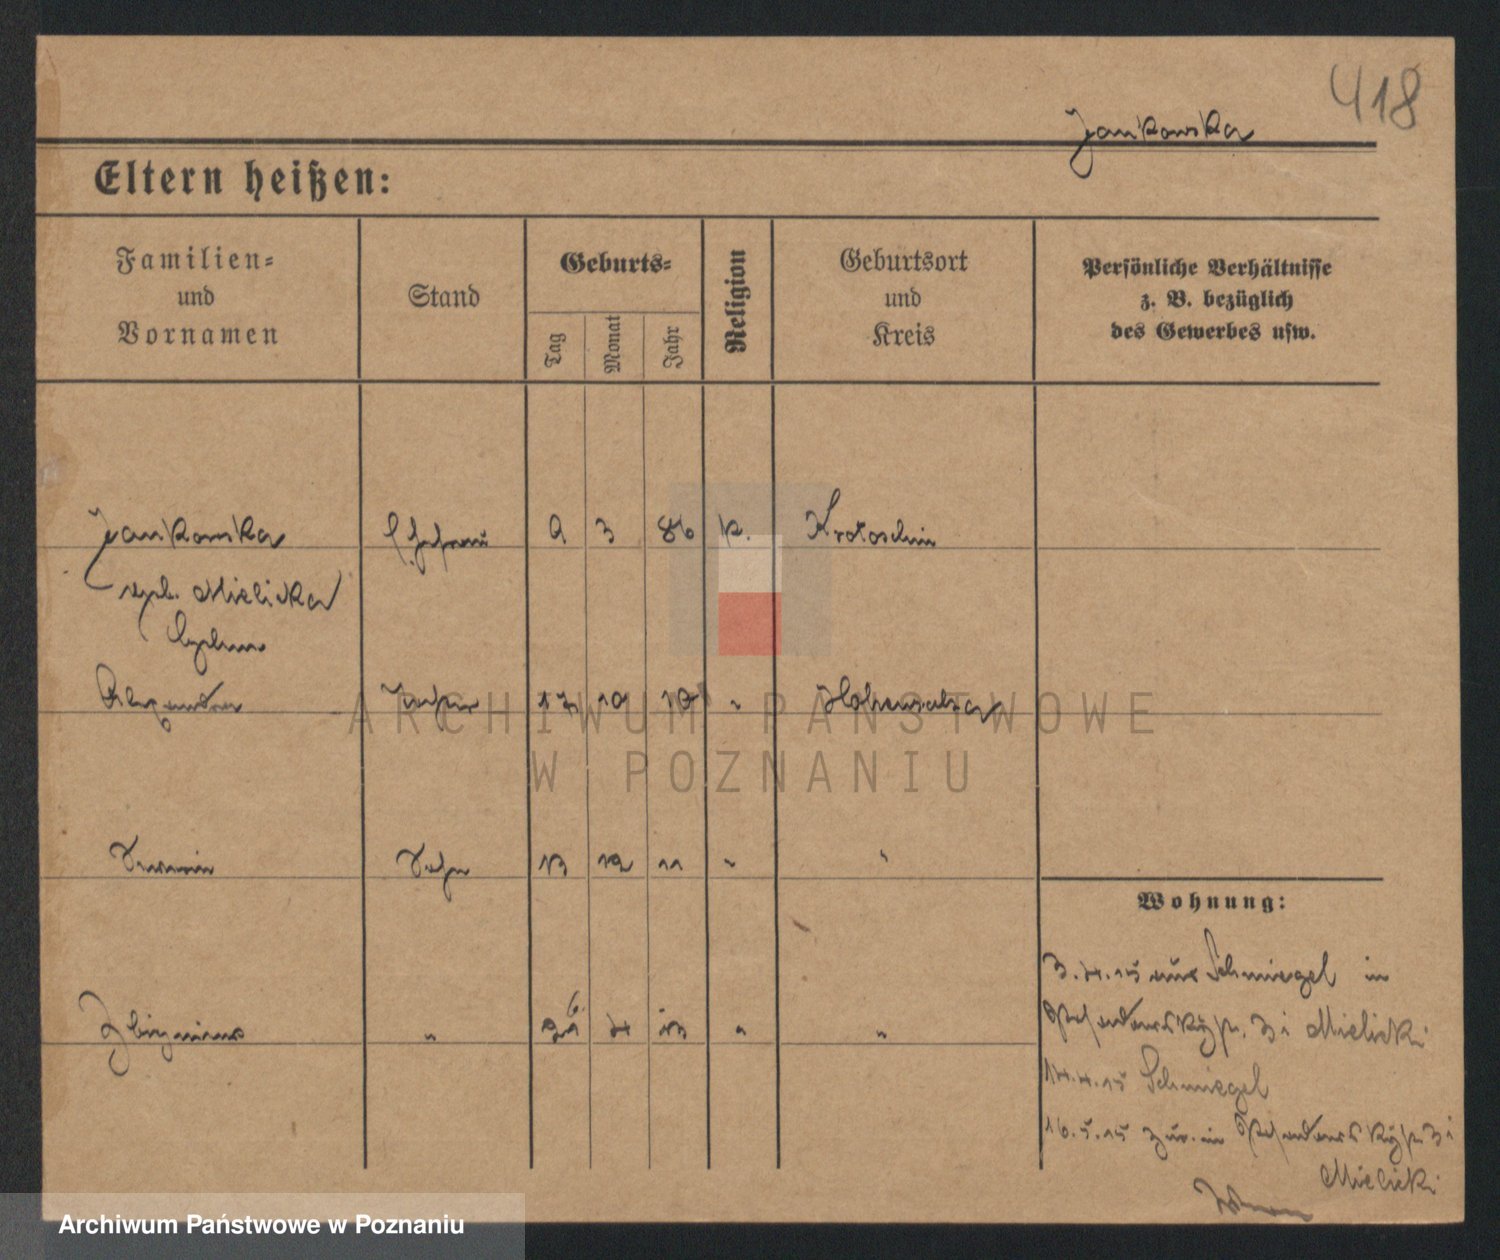 418
Jankowska
Eltern heißen:
Familien=
und
Vornamen
Stand
Geburts=
Tag
Monat
Jahr
Religion
Geburtsort
und
Kreis
Persönliche Verhältnisse
z. B. bezüglich
des Gewerbes usw.
Jankowska Ehefrau 9 3 86 k. Krotoschin
geb. Mielicka
ARCHIWUM PAŃSTWOWE
W POZNANIU
Tochter 17 10 10 " Hohensalza
Sohn 13 12 11 " "
Zbigniew " 6 4 13 " "
Wohnung:
3.4.15 aus Schmiegel in
3 i Mielicki
14.4.15 Schmiegel
16.5.15 zur. in 3 i
Mielicki
Archiwum Państwowe w Poznaniu